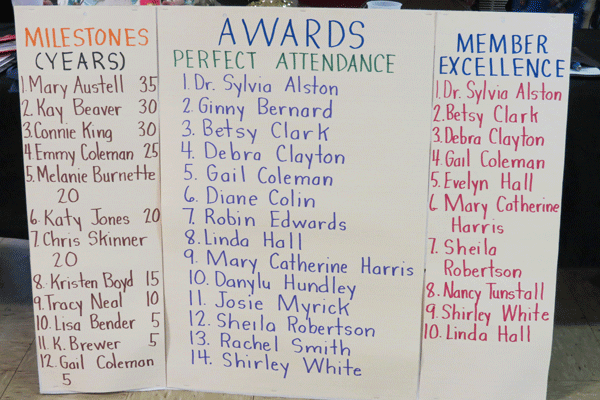 MILESTONES
(YEARS)
1. Mary Austell 35
2. Kay Beaver 30
3. Connie King 30
4. Emmy Coleman 25
5. Melanie Burnette
20
6. Katy Jones 20
7. Chris Skinner
20
8. Kristen Boyd 15
9. Tracy Neal 10
10. Lisa Bender 5
11. K. Brewer 5
12. Gail Coleman
5
AWARDS
PERFECT ATTENDANCE
1. Dr. Sylvia Alston
2. Ginny Bernard
3. Betsy Clark
4. Debra Clayton
5. Gail Coleman
6. Diane Colin
7. Robin Edwards
8. Linda Hall
9. Mary Catherine Harris
10. Danylu Hundley
11. Josie Myrick
12. Sheila Robertson
13. Rachel Smith
14. Shirley White
MEMBER
EXCELLENCE
1. Dr. Sylvia Alston
2. Betsy Clark
3. Debra Clayton
4. Gail Coleman
5. Evelyn Hall
6. Mary Catherine
Harris
7. Sheila
Robertson
8. Nancy Tunstall
9. Shirley White
10. Linda Hall